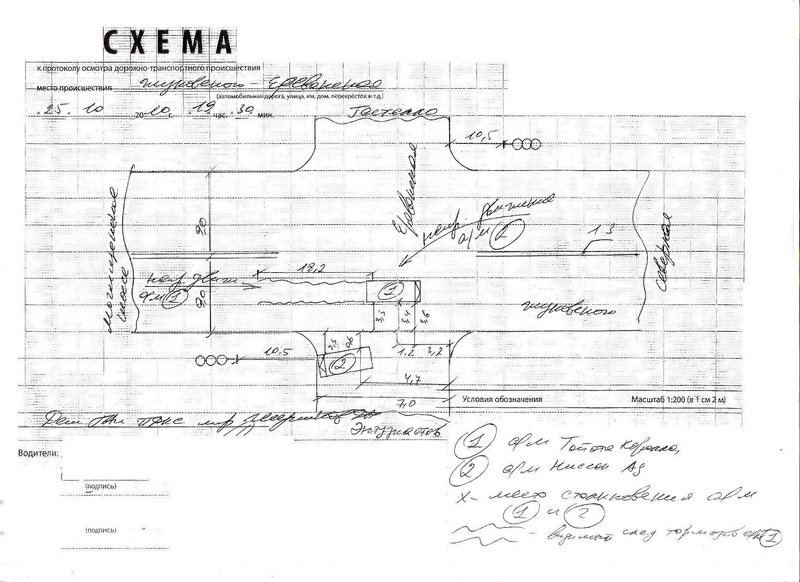 СХЕМА
к протоколу осмотра дорожно-транспортного происшествия
место происшествия Жуковского - Ереванская
(автомобильная дорога, улица, км, дом, перекрёсток и т.д.)
25. 10 2010 г. 19 час. 30 мин.
Гастелло
10,5
Ереванская
напр движения
а/м 2
1.3
Северная
9,0
18,2
напр движ
а/м 1
9,0
1
Жуковского
3,3 3,4 3,6
10,5
2
1,2 3,2
4,7
7,0
Условия обозначения
Масштаб 1:200 (в 1 см 2 м)
Энтузиастов
Водители:
(подпись)
(подпись)
1 а/м Тойота Королла,
2 а/м Ниссан Ad
X - место столкновения а/м
1 и 2
- видимый след торможения 1